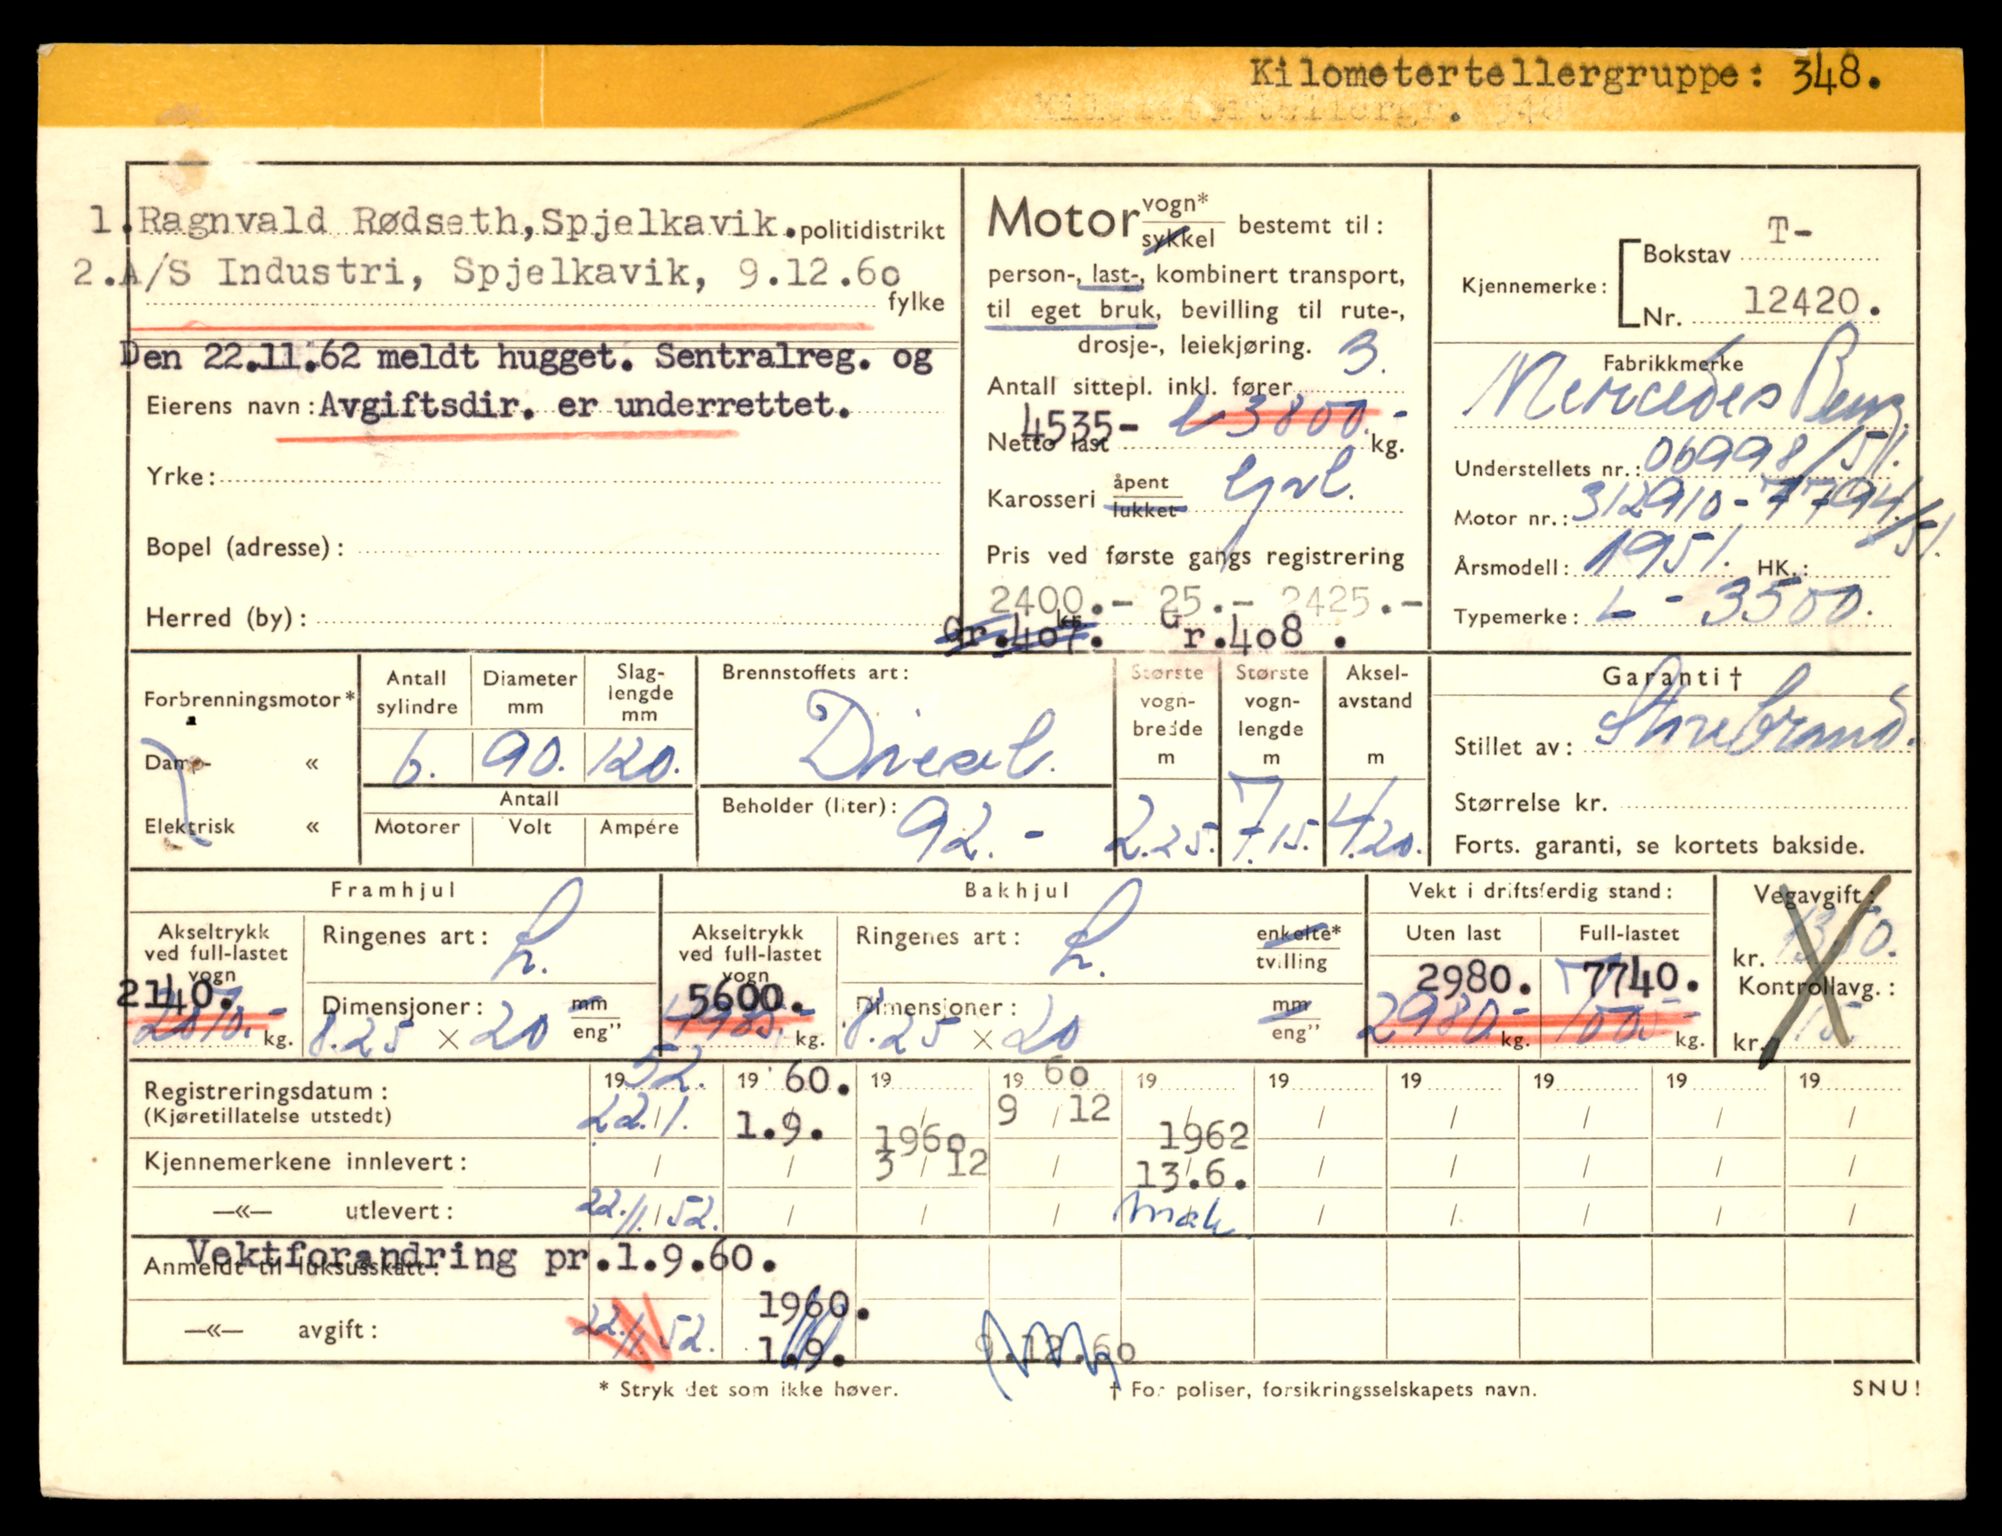 Kilometertellergruppe: 348.
1.Ragnvald Rødseth,Spjelkavik. politidistrikt
2.A/S Industri, Spjelkavik, 9.12.60
fylke
Den 22.11.62 meldt hugget. Sentralreg. og
Eierens navn: Avgiftsdir. er underrettet.
Yrke:
Bopel (adresse):
Herred (by):
Motor vogn* sykkel bestemt til:
person-, last-, kombinert transport,
til eget bruk, bevilling til rute-,
drosje-, leiekjøring. 3.
Antall sittepl. inkl. fører
4535- 3800.-
Netto last kg.
Karosseri åpent lukket
Pris ved første gangs registrering
2400.- 25.- 2425.-
Gr.407. kr. Gr.408 .
Kjennemerke: Bokstav T-
Nr. 12420.
Fabrikkmerke
Mercedes Benz.
Understellets nr.: 06998/51.
Motor nr.: 312910-7794/51.
Årsmodell: 1951. HK.:
Typemerke: L-3500.
Forbrenningsmotor*
Damp- «
Elektrisk «
Antall sylindre 6.
Diameter mm 90.
Slaglengde mm 120.
Antall
Motorer Volt Ampére
Brennstoffets art: Diesel.
Beholder (liter): 92.-
Største vognbredde m 2.25.
Største vognlengde m 7.15.
Akselavstand m 4.20.
Garanti †
Stillet av: Storebrand.
Størrelse kr.
Forts. garanti, se kortets bakside.
Framhjul
Akseltrykk ved full-lastet vogn
2140.
2070.- kg.
Ringenes art: L.
Dimensjoner: 8.25 × 20 mm eng"
Bakhjul
Akseltrykk ved full-lastet vogn
5600.
4935.- kg.
Ringenes art: L. enkelte* tvilling
Dimensjoner: 8.25 × 20 mm eng"
Vekt i driftsferdig stand:
Uten last Full-lastet
2980. 7740.
2980.- kg. 7005.- kg.
Vegavgift:
kr.
Kontrollavg.:
kr. 15.
Registreringsdatum: 1952. 19 60. 19 19 60 19 19 19 19 19 19
(Kjøretillatelse utstedt) 22./1. 1.9. / 9 / 12 / / / / / /
1960 1962
Kjennemerkene innlevert: / / 3 / 12 / 13.6. / / / / /
—«— utlevert: 22./1.52. / / / / / / / /
Vektforandring pr.1.9.60.
Anmeldt til luksusskatt:
1960.
—«— avgift: 22./1.52. 1.9. 9.12.60
* Stryk det som ikke høver.
† For poliser, forsikringsselskapets navn.
SNU!